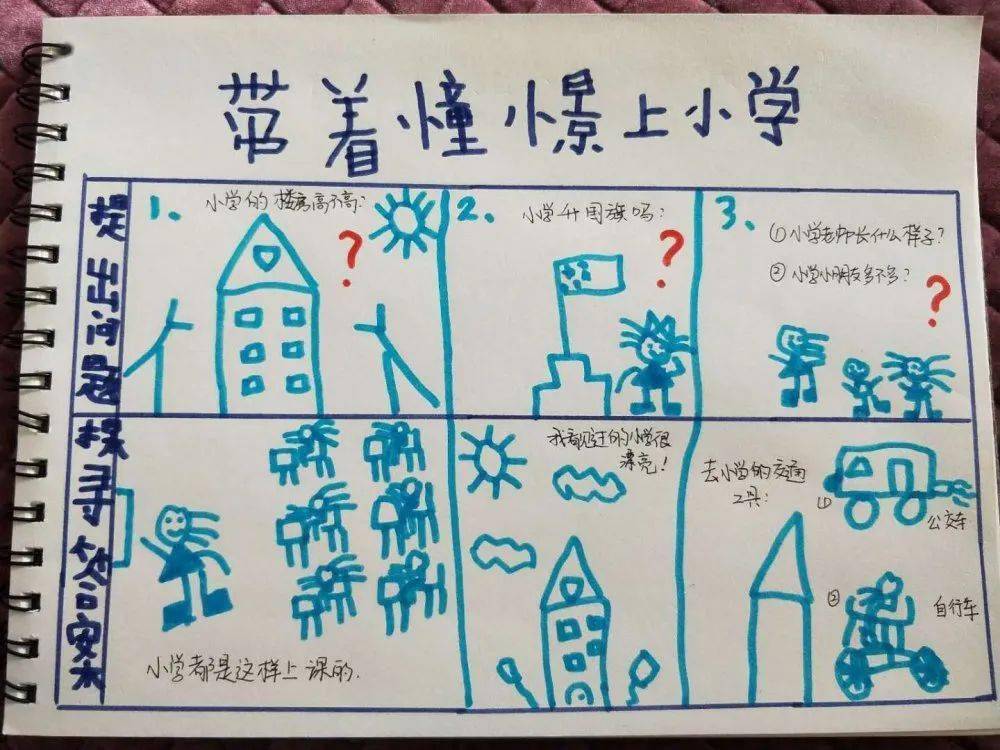 带着憧憬上小学
提出问题
1.
小学的楼房高不高?
?
2.
小学升国旗吗?
?
3.
①小学老师长什么样子?
②小学小朋友多不多?
?
探寻答案
小学都是这样上课的.
过的小学很
漂亮!
去小学的交通
工具:
①
公交车
②
自行车